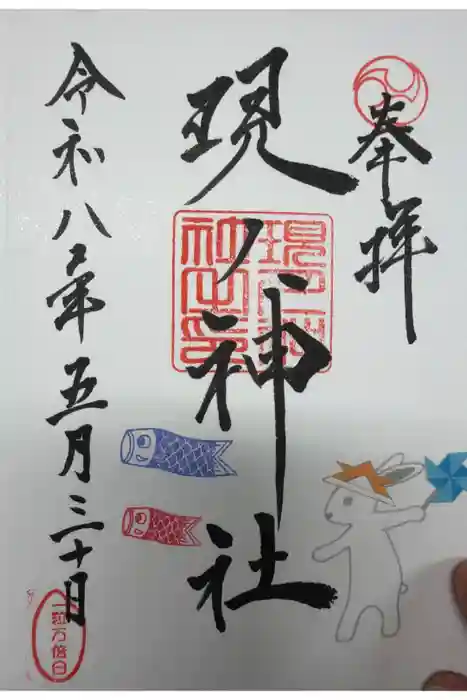 奉拝
現人神社
現人神
社之印
令和八年五月三十日
一粒万倍日